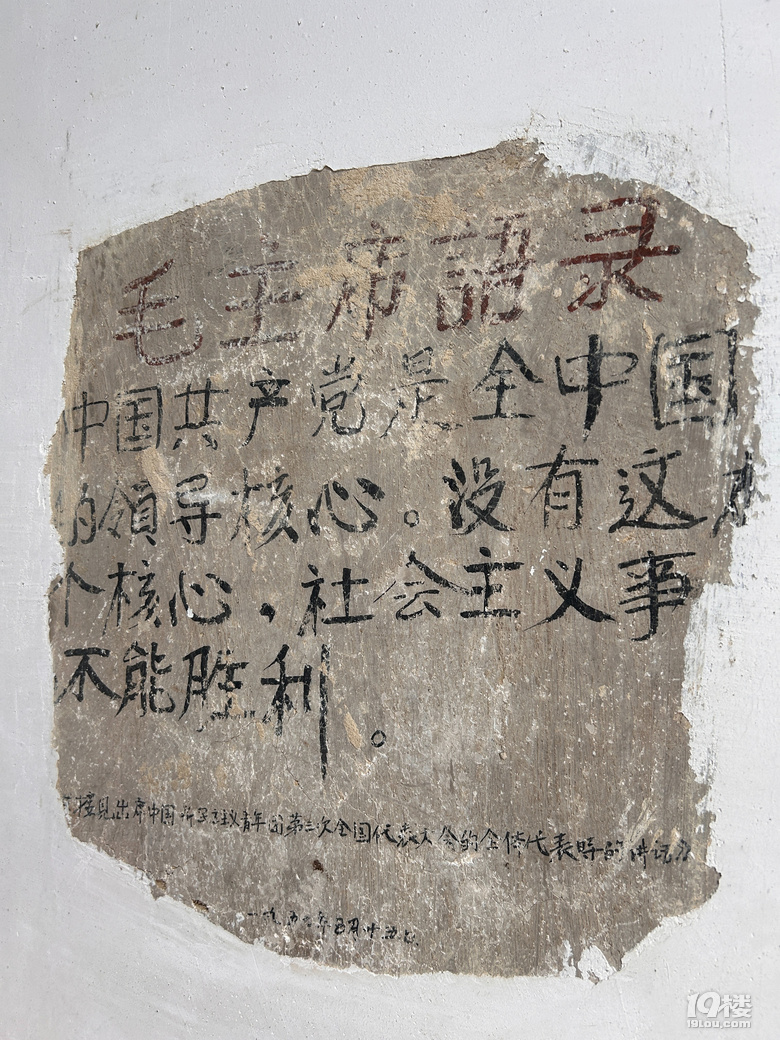 毛主席語录
中国共产党是全中国
的領导核心。没有这
个核心，社会主义事
不能胜利。
接見出席中国新民主主义青年团第三次全国代表大会的全体代表時的讲话》
一九五七年五月十五日
19楼
19lou.com